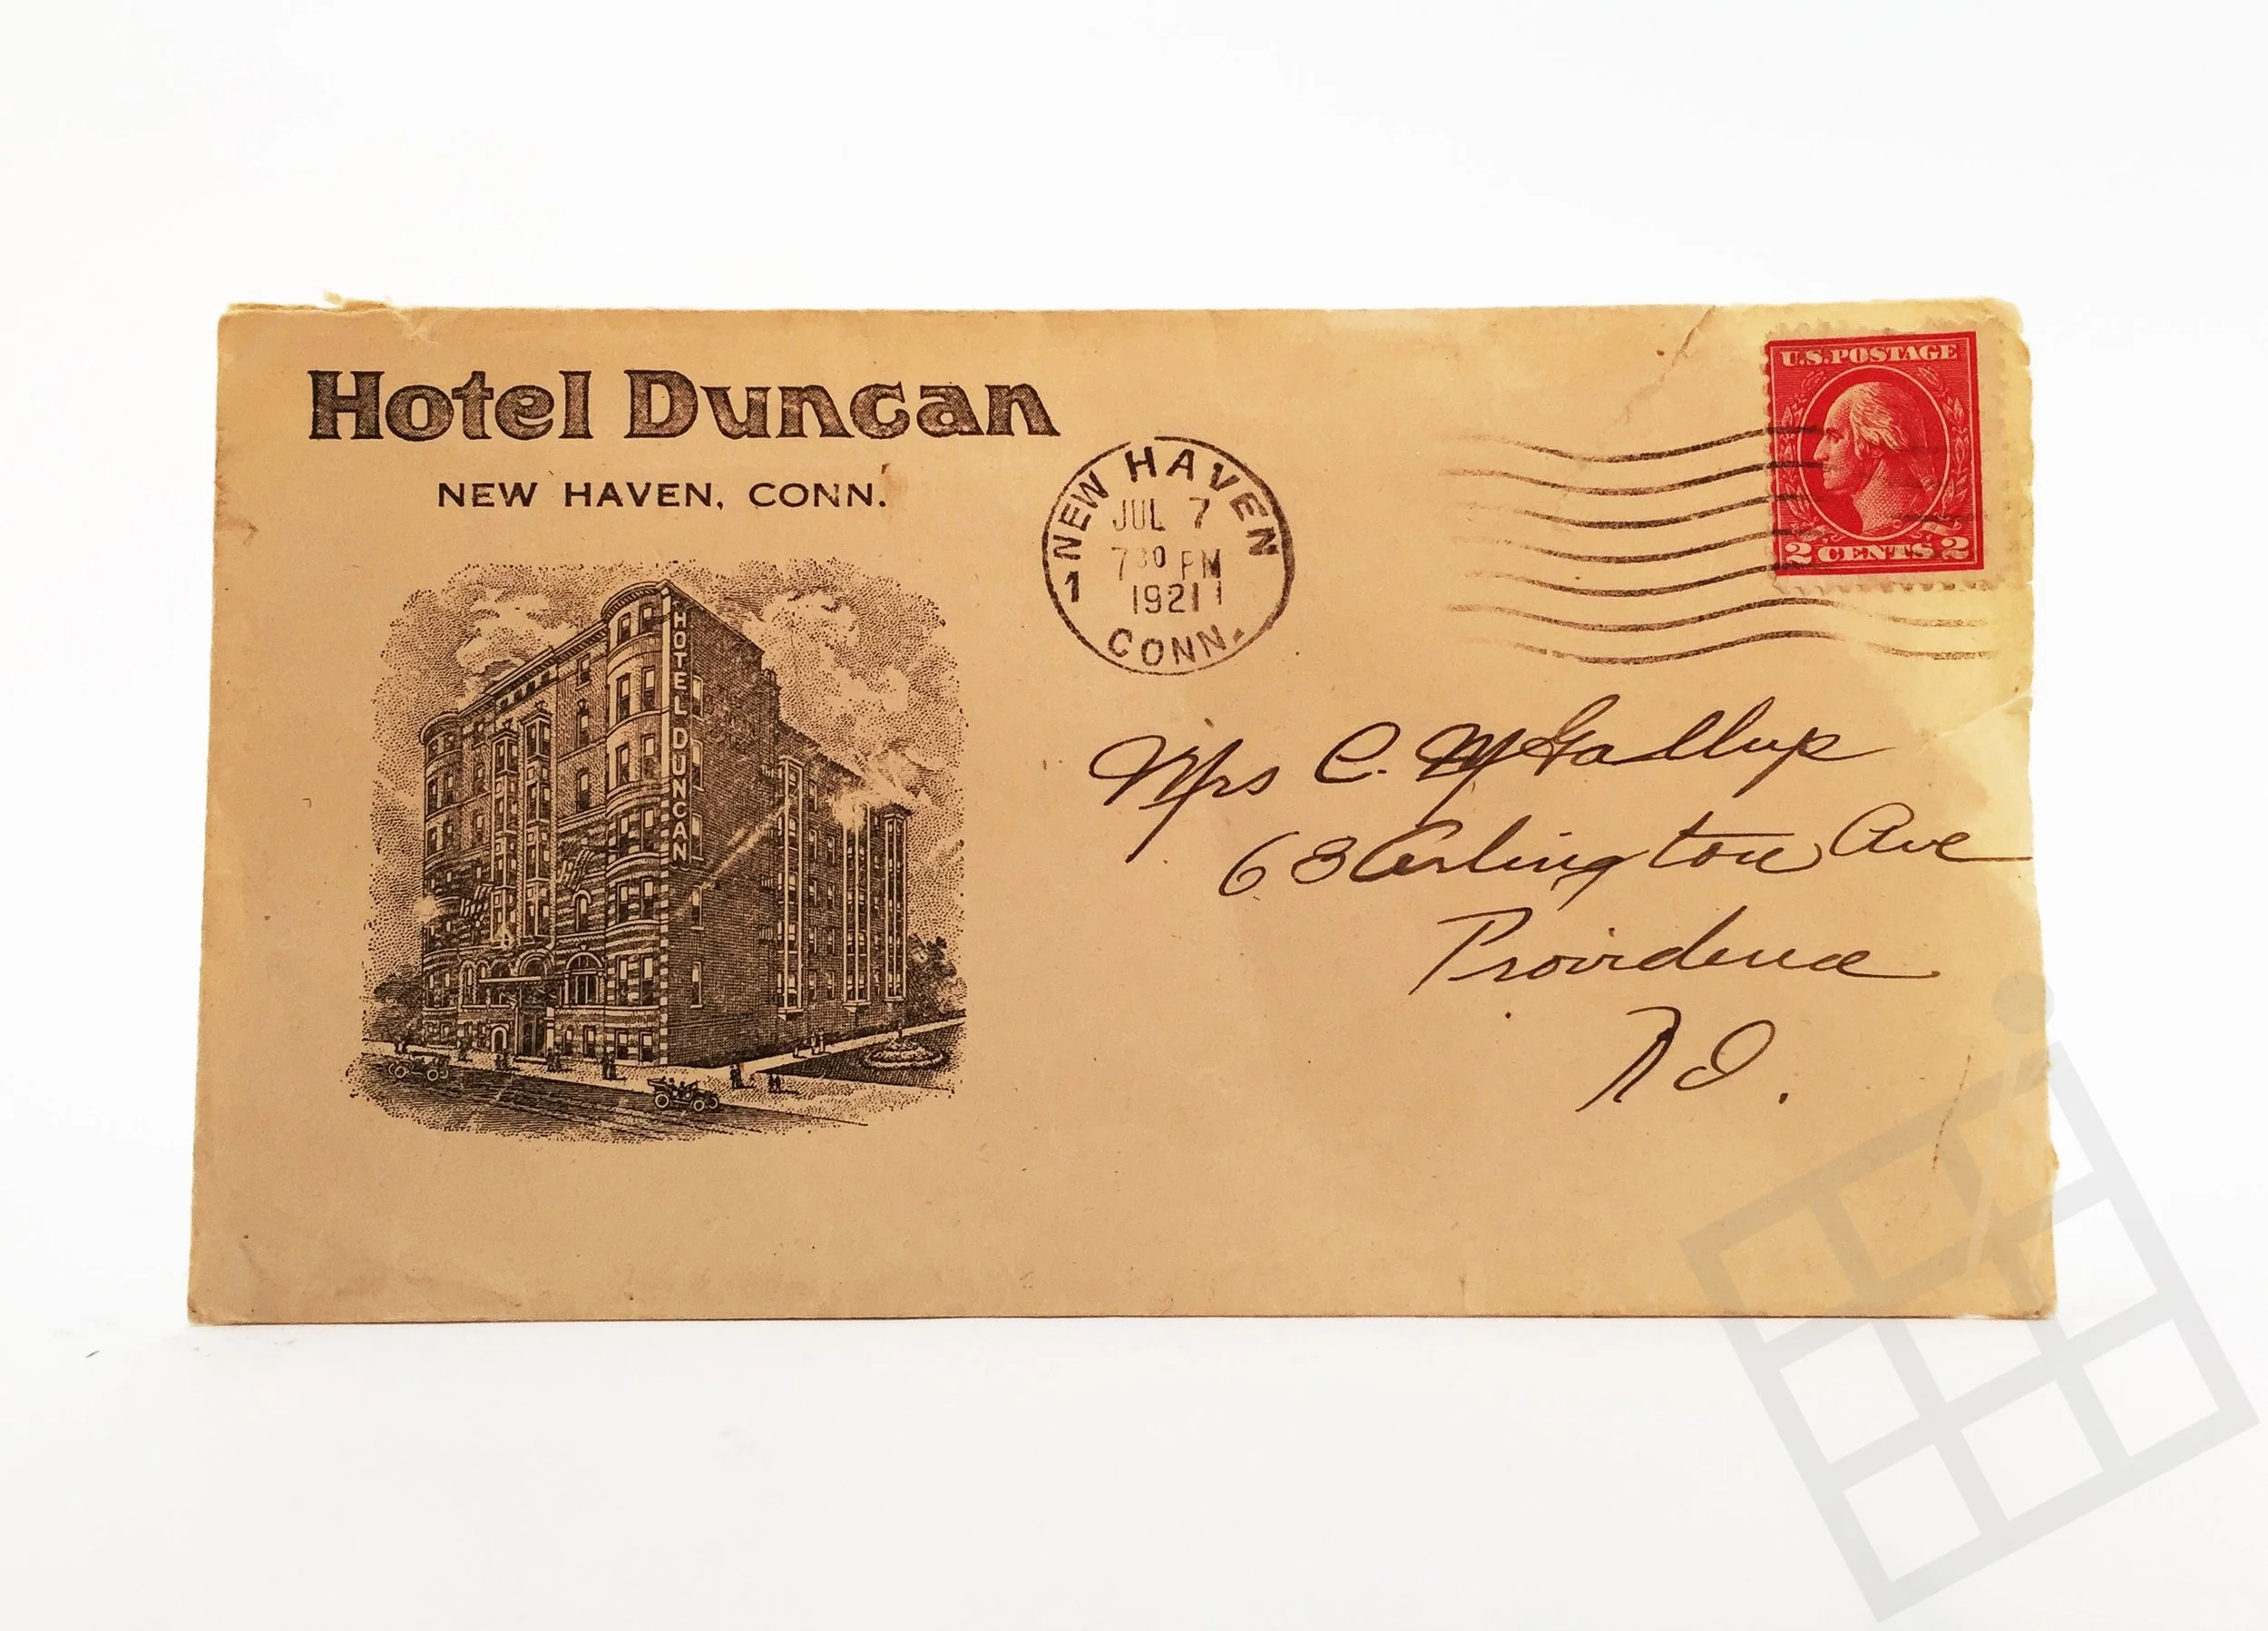 Hotel Duncan
NEW HAVEN, CONN.
HOTEL DUNCAN
NEW HAVEN
JUL 7
7 30 PM
1 1921
CONN.
U.S. POSTAGE
2 CENTS 2
Mrs C. M Gallup
63 Arlington Ave
Providence
R I.